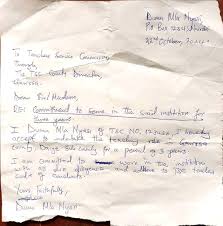 Duwn Mla Mysari
PO Box
22nd October, 2024
To Teachers Service Commission
Through
To TSC County Director,
Garissa.
Dear Sir/Madam,
REF: Commitment to serve in the said institution for
three years
I Duwn Mla Mysari of TSC NO. hereby
accept to undertake the teaching role in Garissa
County for a period of 3 years
I am committed to work in the institution
with due diligence and adhere to TSC
Code of conduct.
Yours faithfully,
Duwn Mla Mysari